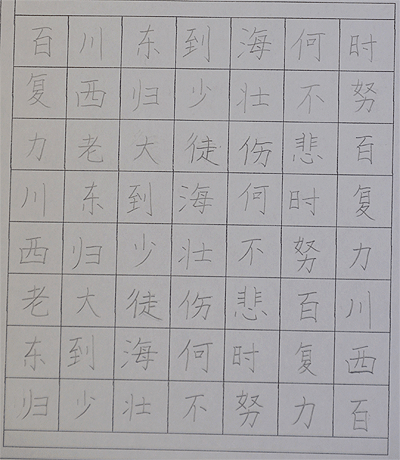 百川东到海何时
复西归少壮不努
力老大徒伤悲百
川东到海何时复
西归少壮不努力
老大徒伤悲百川
东到海何时复西
归少壮不努力百